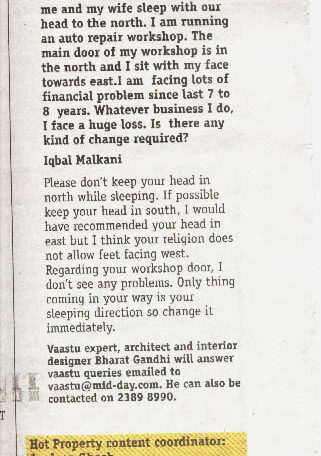 me and my wife sleep with our
head to the north. I am running
an auto repair workshop. The
main door of my workshop is in
the north and I sit with my face
towards east.I am facing lots of
financial problem since last 7 to
8 years. Whatever business I do,
I face a huge loss. Is there any
kind of change required?
Iqbal Malkani
Please don't keep your head in
north while sleeping. If possible
keep your head in south, I would
have recommended your head in
east but I think your religion does
not allow feet facing west.
Regarding your workshop door, I
don't see any problems. Only thing
coming in your way is your
sleeping direction so change it
immediately.
Vaastu expert, architect and interior
designer Bharat Gandhi will answer
vaastu queries emailed to
vaastu@mid-day.com. He can also be
contacted on 2389 8990.
T
Hot Property content coordinator: